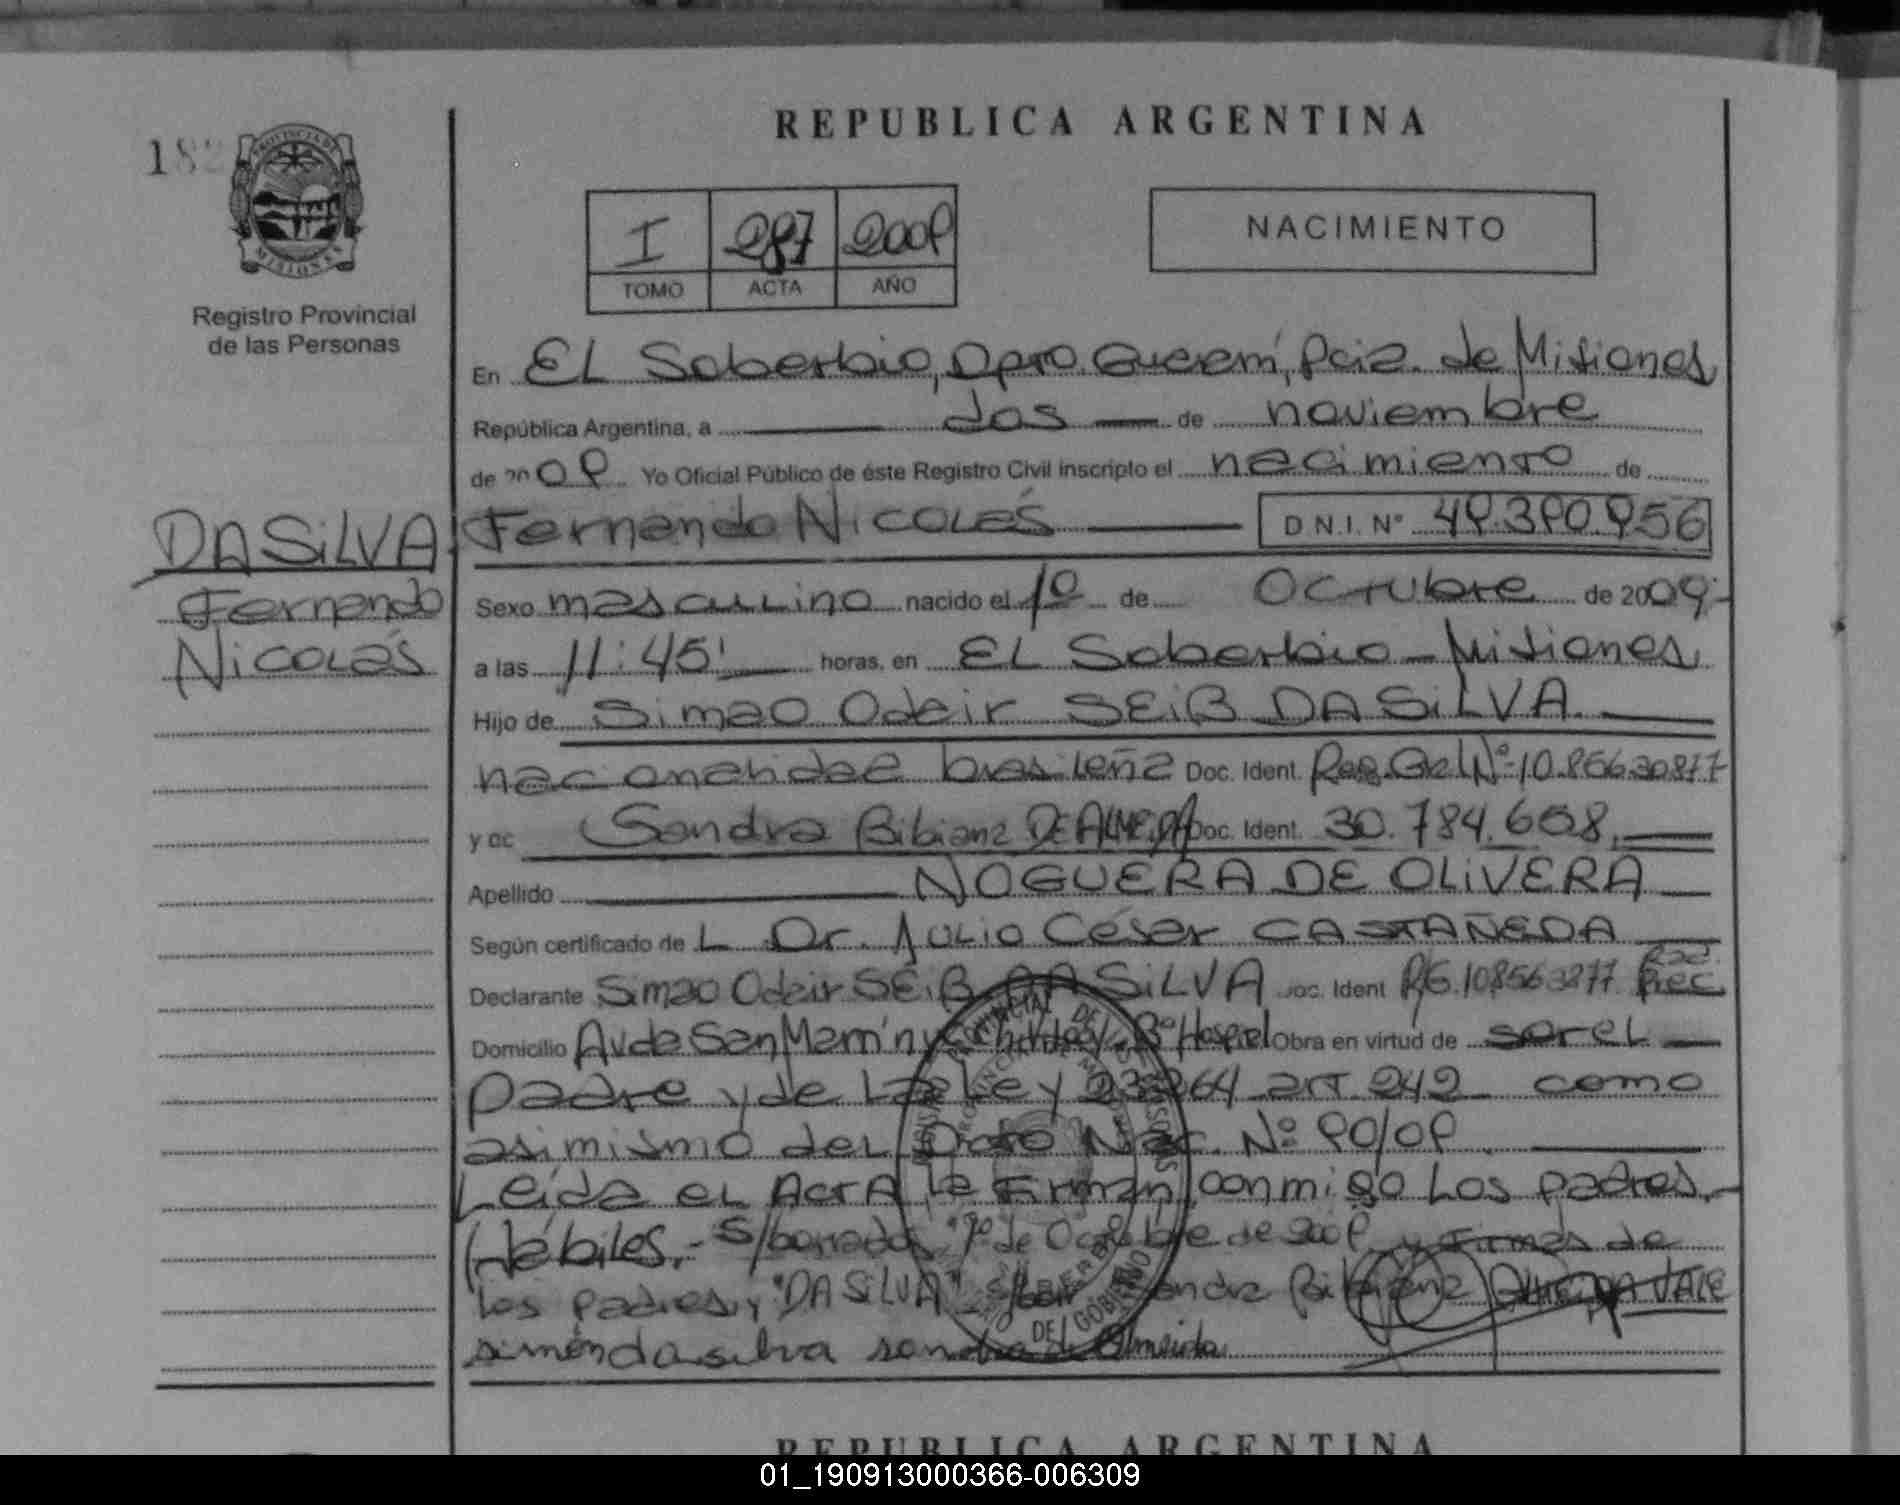 REPUBLICA ARGENTINA
182
PROVINCIA DE
MISIONES
Registro Provincial
de las Personas
I 287 2009
TOMO ACTA AÑO
NACIMIENTO
En EL Soberbio, Dpto. Guaraní, Pcia. de Misiones
República Argentina, a dos de noviembre
de 2009 Yo Oficial Público de éste Registro Civil inscripto el nacimiento de
DA SiLVA
Fernando
Nicolás
Fernando Nicolás D.N.I. Nº 49.390.956
Sexo masculino nacido el 1º de Octubre de 2009.-
a las 11:45' horas, en EL Soberbio - Misiones
Hijo de Simao Odair SEiB DA SiLVA.
nacionalidad brasileña Doc. Ident. Reg. Gral Nº 10.85630877
y de Sandra Bibiana DE ALMEiDA Doc. Ident. 30.784.658.
Apellido NOGUERA DE OLiVERA
Según certificado de L Dr. Julio César CASTAÑEDA
Declarante Simao Odair SEiB DA SiLVA Doc. Ident RG.108563877
Domicilio Avda San Martín y Bº Hospital Obra en virtud de ser el
padre y de La Ley 23264 art. 242 como
asimismo del Dcto Nac. Nº 90/09
Leída el ActA la Firman conmigo Los padres,
Hábiles.- S/borrados "1º de Octubre de 2009 y Firmas de
los padres y "DA SiLVA" Sandra Bibiana
simón da silva sandra de Almeida
REPUBLICA ARGENTINA
01_190913000366-006309